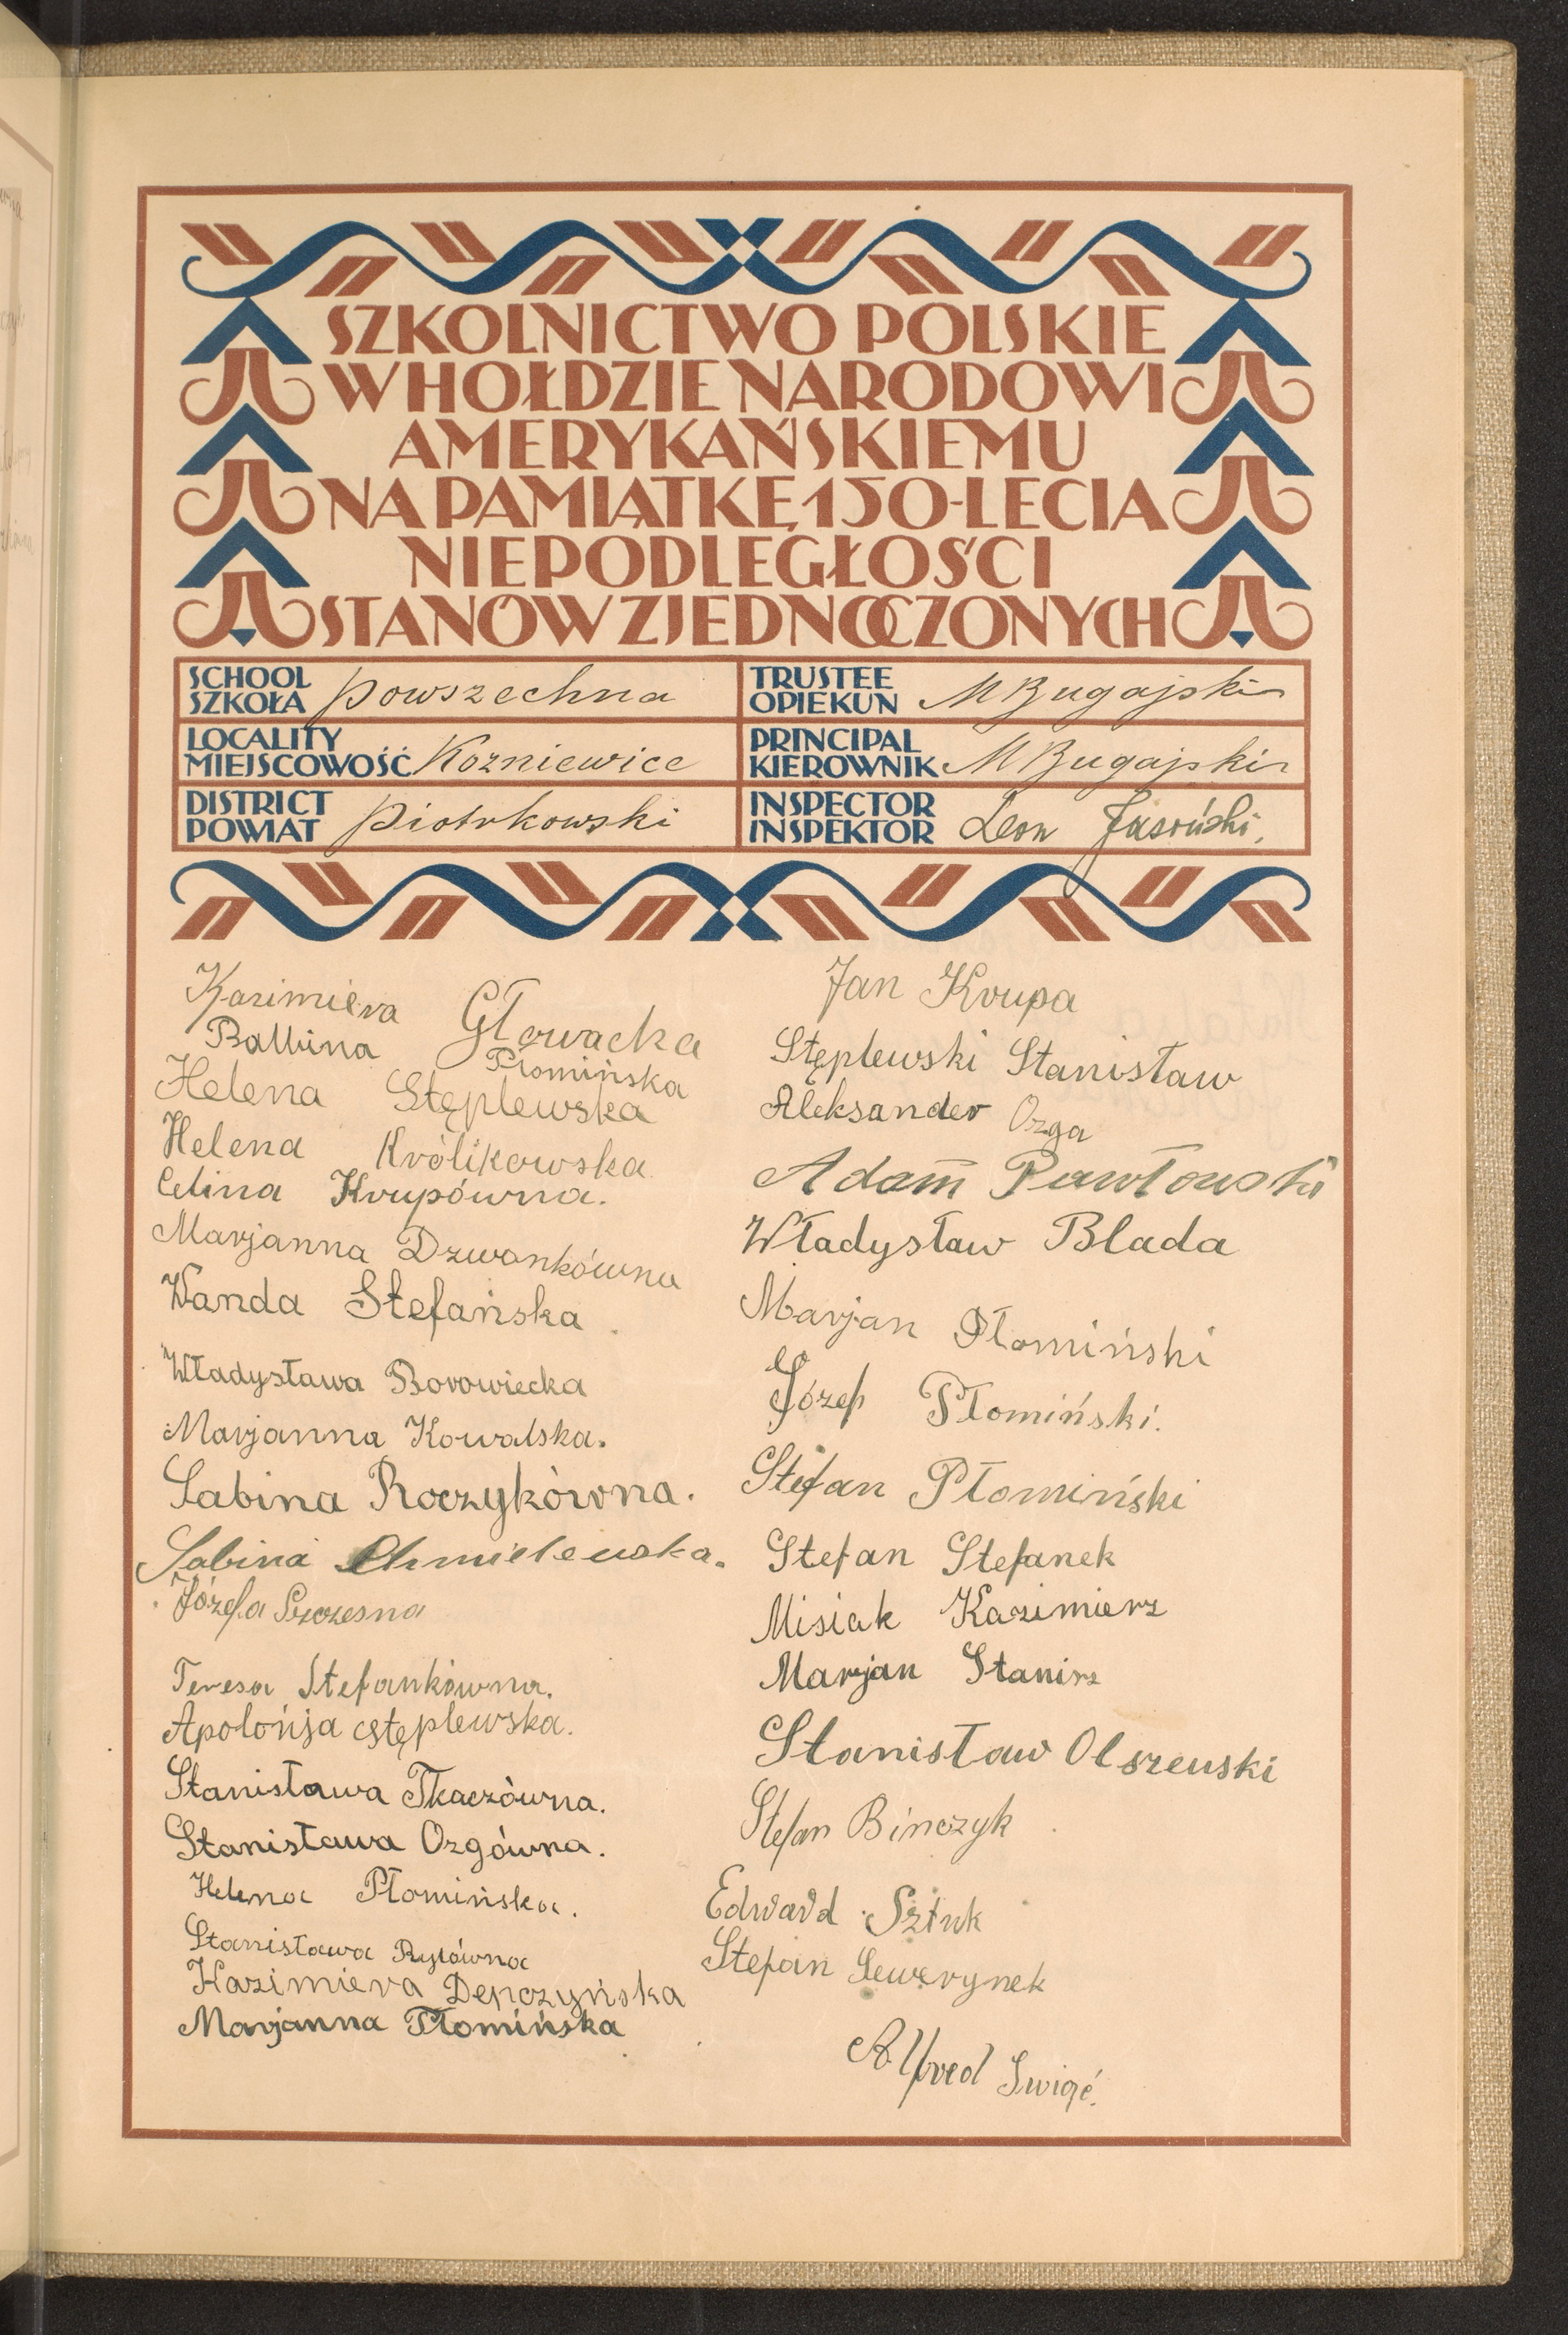 SZKOLNICTWO POLSKIE
W HOŁDZIE NARODOWI
AMERYKAŃSKIEMU
NA PAMIĄTKĘ 150-LECIA
NIEPODLEGŁOŚCI
STANÓW ZJEDNOCZONYCH
SCHOOL
SZKOŁA powszechna
TRUSTEE
OPIEKUN M Bugajski
LOCALITY
MIEJSCOWOŚĆ Kozniewice
PRINCIPAL
KIEROWNIK M Bugajski
DISTRICT
POWIAT piotrkowski
INSPECTOR
INSPEKTOR Leon Jasoński,
Kazimiera Głowacka
Balbina Płomińska
Helena Stęplewska
Helena Królikowska
Celina Krupówna.
Marjanna Dzwonkówna
Wanda Stefańska
Władysława Borowiecka
Marjanna Kowalska.
Sabina Roczykówna.
Sabina Chmielewska.
Józefa Szczesna
Teresa Stefankówna.
Apolońja Stęplewska.
Stanisława Tkaczówna.
Stanisława Ozgówna.
Helena Płomińska.
Stanisława Rylówna
Kazimiera Depczyńska
Marjanna Płomińska
Jan Krupa
Stęplewski Stanisław
Aleksander Ozga
Adam Pawłowski
Władysław Blada
Marjan Płomiński
Józef Płomiński.
Stefan Płomiński
Stefan Stefanek
Misiak Kazimierz
Marjan Stanisz
Stanisław Olszeuski
Stefan Binczyk
Edward Sztuk
Stefan Sewerynek
Alfred